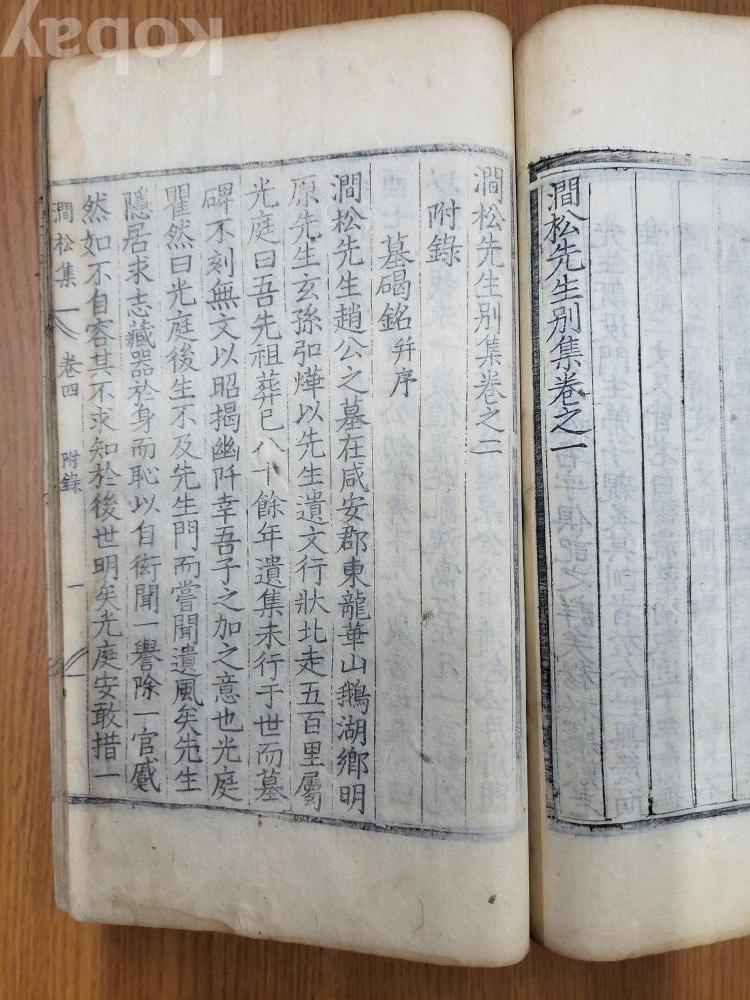 kobay
澗松先生別集卷之一
澗松先生別集卷之二
附錄
墓碣銘 幷序
澗松先生趙公之墓在咸安郡東龍華山鵝湖鄉明
原先生玄孫弘燁以先生遺文行狀北走五百里屬
光庭曰吾先祖葬已八十餘年遺集未行于世而墓
碑不刻無文以昭揭幽阡幸吾子之加之意也光庭
瞿然曰光庭後生不及先生門而嘗聞遺風矣先生
隱居求志藏器於身而恥以自衒聞一譽除一官慼
然如不自容其不求知於後世明矣光庭安敢措一
澗松集 卷四 附錄 一